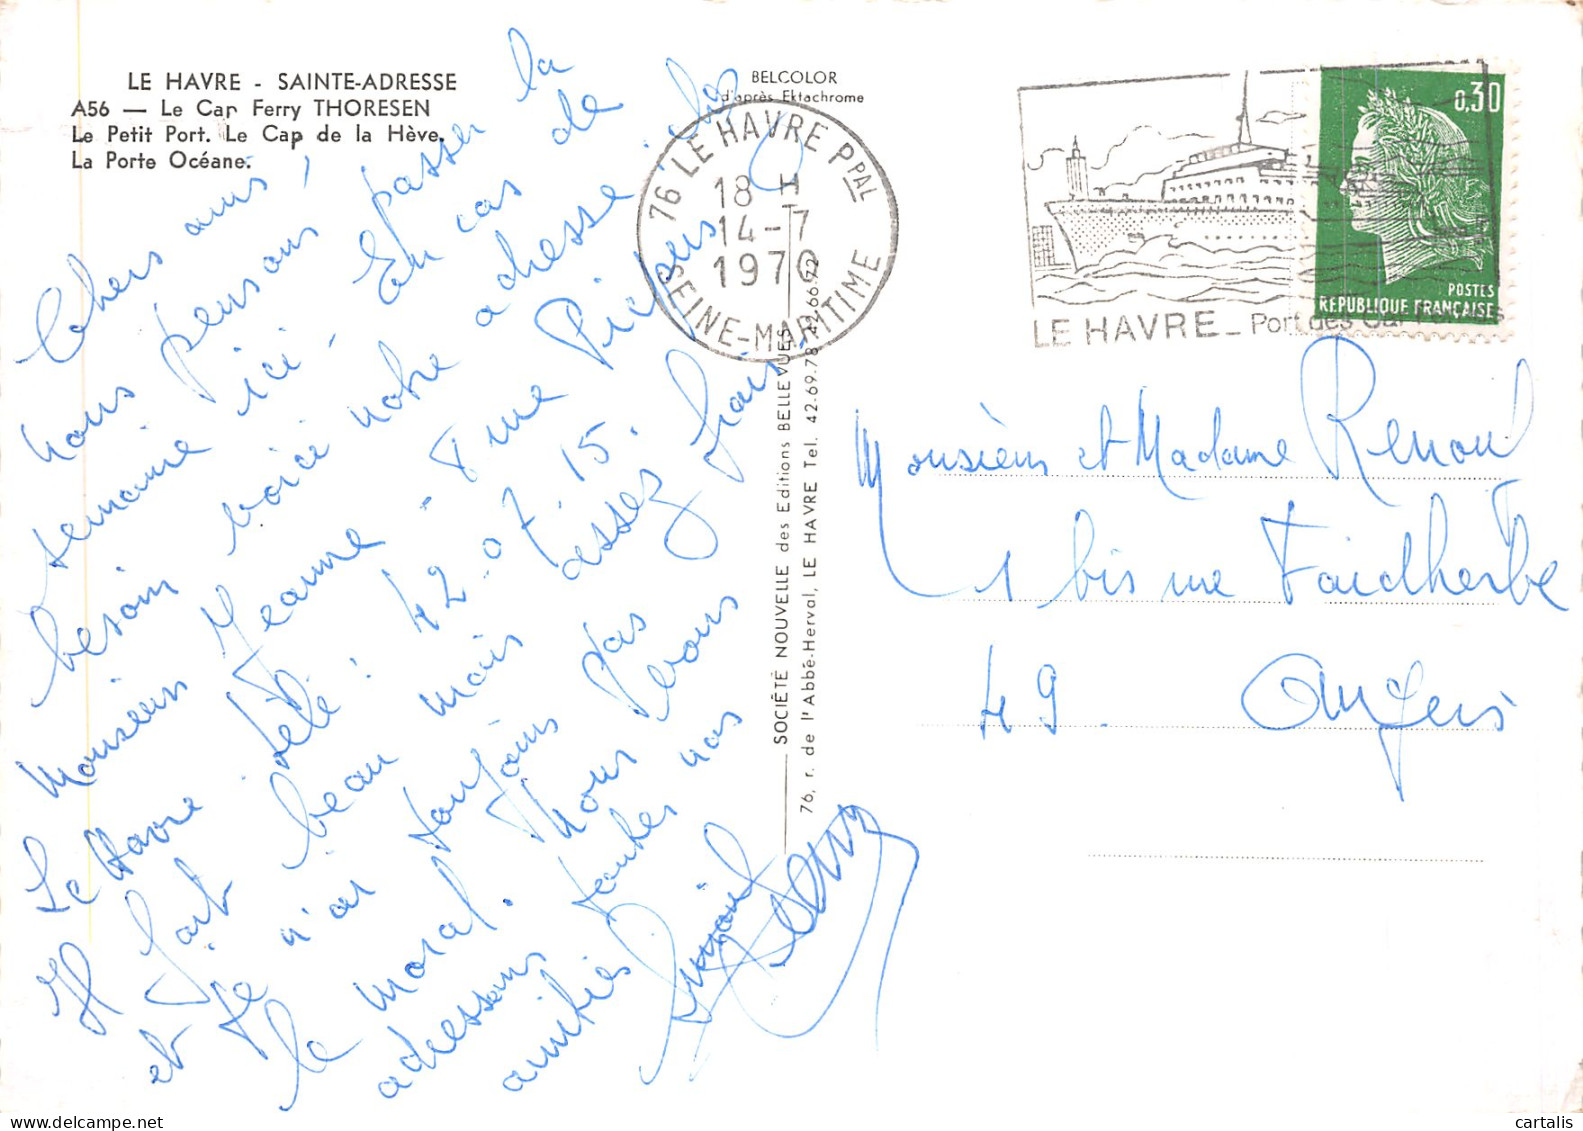 LE HAVRE - SAINTE-ADRESSE
A56 — Le Car Ferry THORESEN
Le Petit Port. Le Cap de la Hève.
La Porte Océane.
BELCOLOR
d'après Ektachrome
Chers amis,
nous pensons passer la
semaine ici - En cas de
besoin voici notre adresse : chez
Monsieur Jeanne - 8 rue
Le Havre. télé : 42-07-15.
Il fait beau mais assez frais,
et je n'ai toujours pas
le moral. Nous vous
adressons toutes nos
amitiés
SOCIÉTÉ NOUVELLE des Editions BELLEVUES
76, r. de l'Abbé-Herval, LE HAVRE Tel. 42.69.78 42.66.72
76 LE HAVRE PPAL
18 H
14-7
1970
SEINE-MARITIME
LE HAVRE - Port des Car Ferries
0,30
POSTES
REPUBLIQUE FRANÇAISE
Monsieur et Madame Renoul
1 bis rue Faidherbe
49. Angers
cartalis